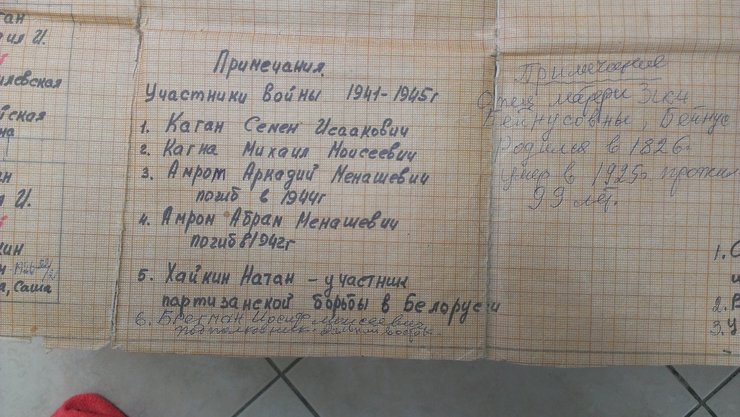 ган
ил И.
илевская
йская
на
ган
л И.
кин
а, Саша
Примечания.
Участники войны 1941-1945г
1. Каган Семен Исаакович
2. Кагна Михаил Моисеевич
3. Амрот Аркадий Менашевич
погиб в 1944г
4. Амрон Абрам Менашевич
погиб в 1942г
5. Хайкин Натан - участник
партизанской борьбы в Белорусси
6. Брегман Иосиф Моисеевич
подполковник
Примечание
Отец
Бейнусовны, Бейнус
Родился в 1826г.
умер в 1925г прожил
99 лет.
1. С
и
2. В
3. У